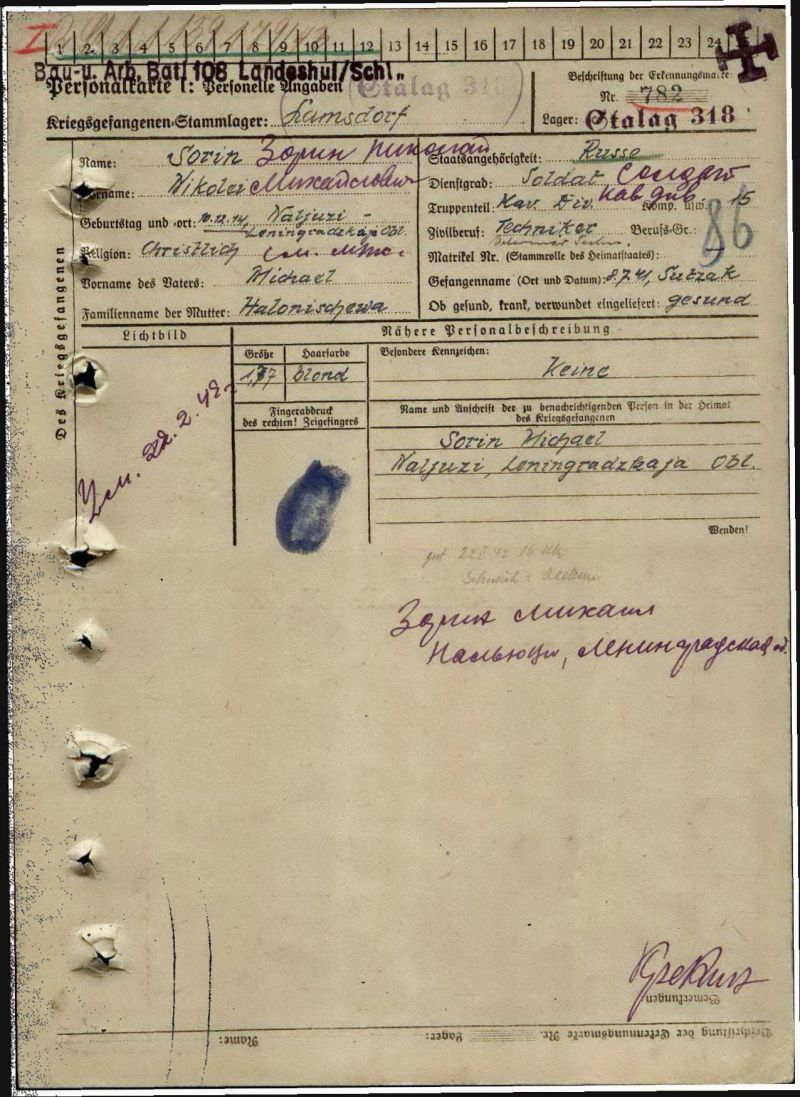 I
1 2 3 4 5 6 7 8 9 10 11 12 13 14 15 16 17 18 19 20 21 22 23 24
Bau-u. Arb. Batl 108 Landeshut/Schl.
Personalkarte I: Personelle Angaben
Stalag 318
Kriegsgefangenen-Stammlager: Lamsdorf
Beschriftung der Erkennungsmarke
Nr. 782
Lager: Stalag 318
Des Kriegsgefangenen
Name: Sorin Зорин Николай
Vorname: Nikolai Михайлович
Geburtstag und -ort: 10.12.14, Naljuzi -
Leningradzkaja Obl.
Religion: Christlich
Vorname des Vaters: Michael
Familienname der Mutter:
Staatsangehörigkeit: Russe
Dienstgrad: Soldat Солдат
Truppenteil: Kav. Div. Кав див. Komp. usw.: 15
Zivilberuf: Techniker Berufs-Gr.:
Matrikel Nr. (Stammrolle des Heimatstaates):
86
Gefangenname (Ort und Datum): 8.7.41,
Ob gesund, krank, verwundet eingeliefert: gesund
Lichtbild
Nähere Personalbeschreibung
Größe
Haarfarbe
Besondere Kennzeichen:
1,77
blond
Keine
Fingerabdruck
des rechten! Zeigefingers
Name und Anschrift der zu benachrichtigenden Person in der Heimat
des Kriegsgefangenen
Sorin Michael
Naljuzi, Leningradzkaja Obl.
Wenden!
Ум. 22.2.42
Зорин Михаил
Нальюци, Ленинградская о.
Bemerkungen
Beschriftung der Erkennungsmarke Nr.
Lager:
Name: